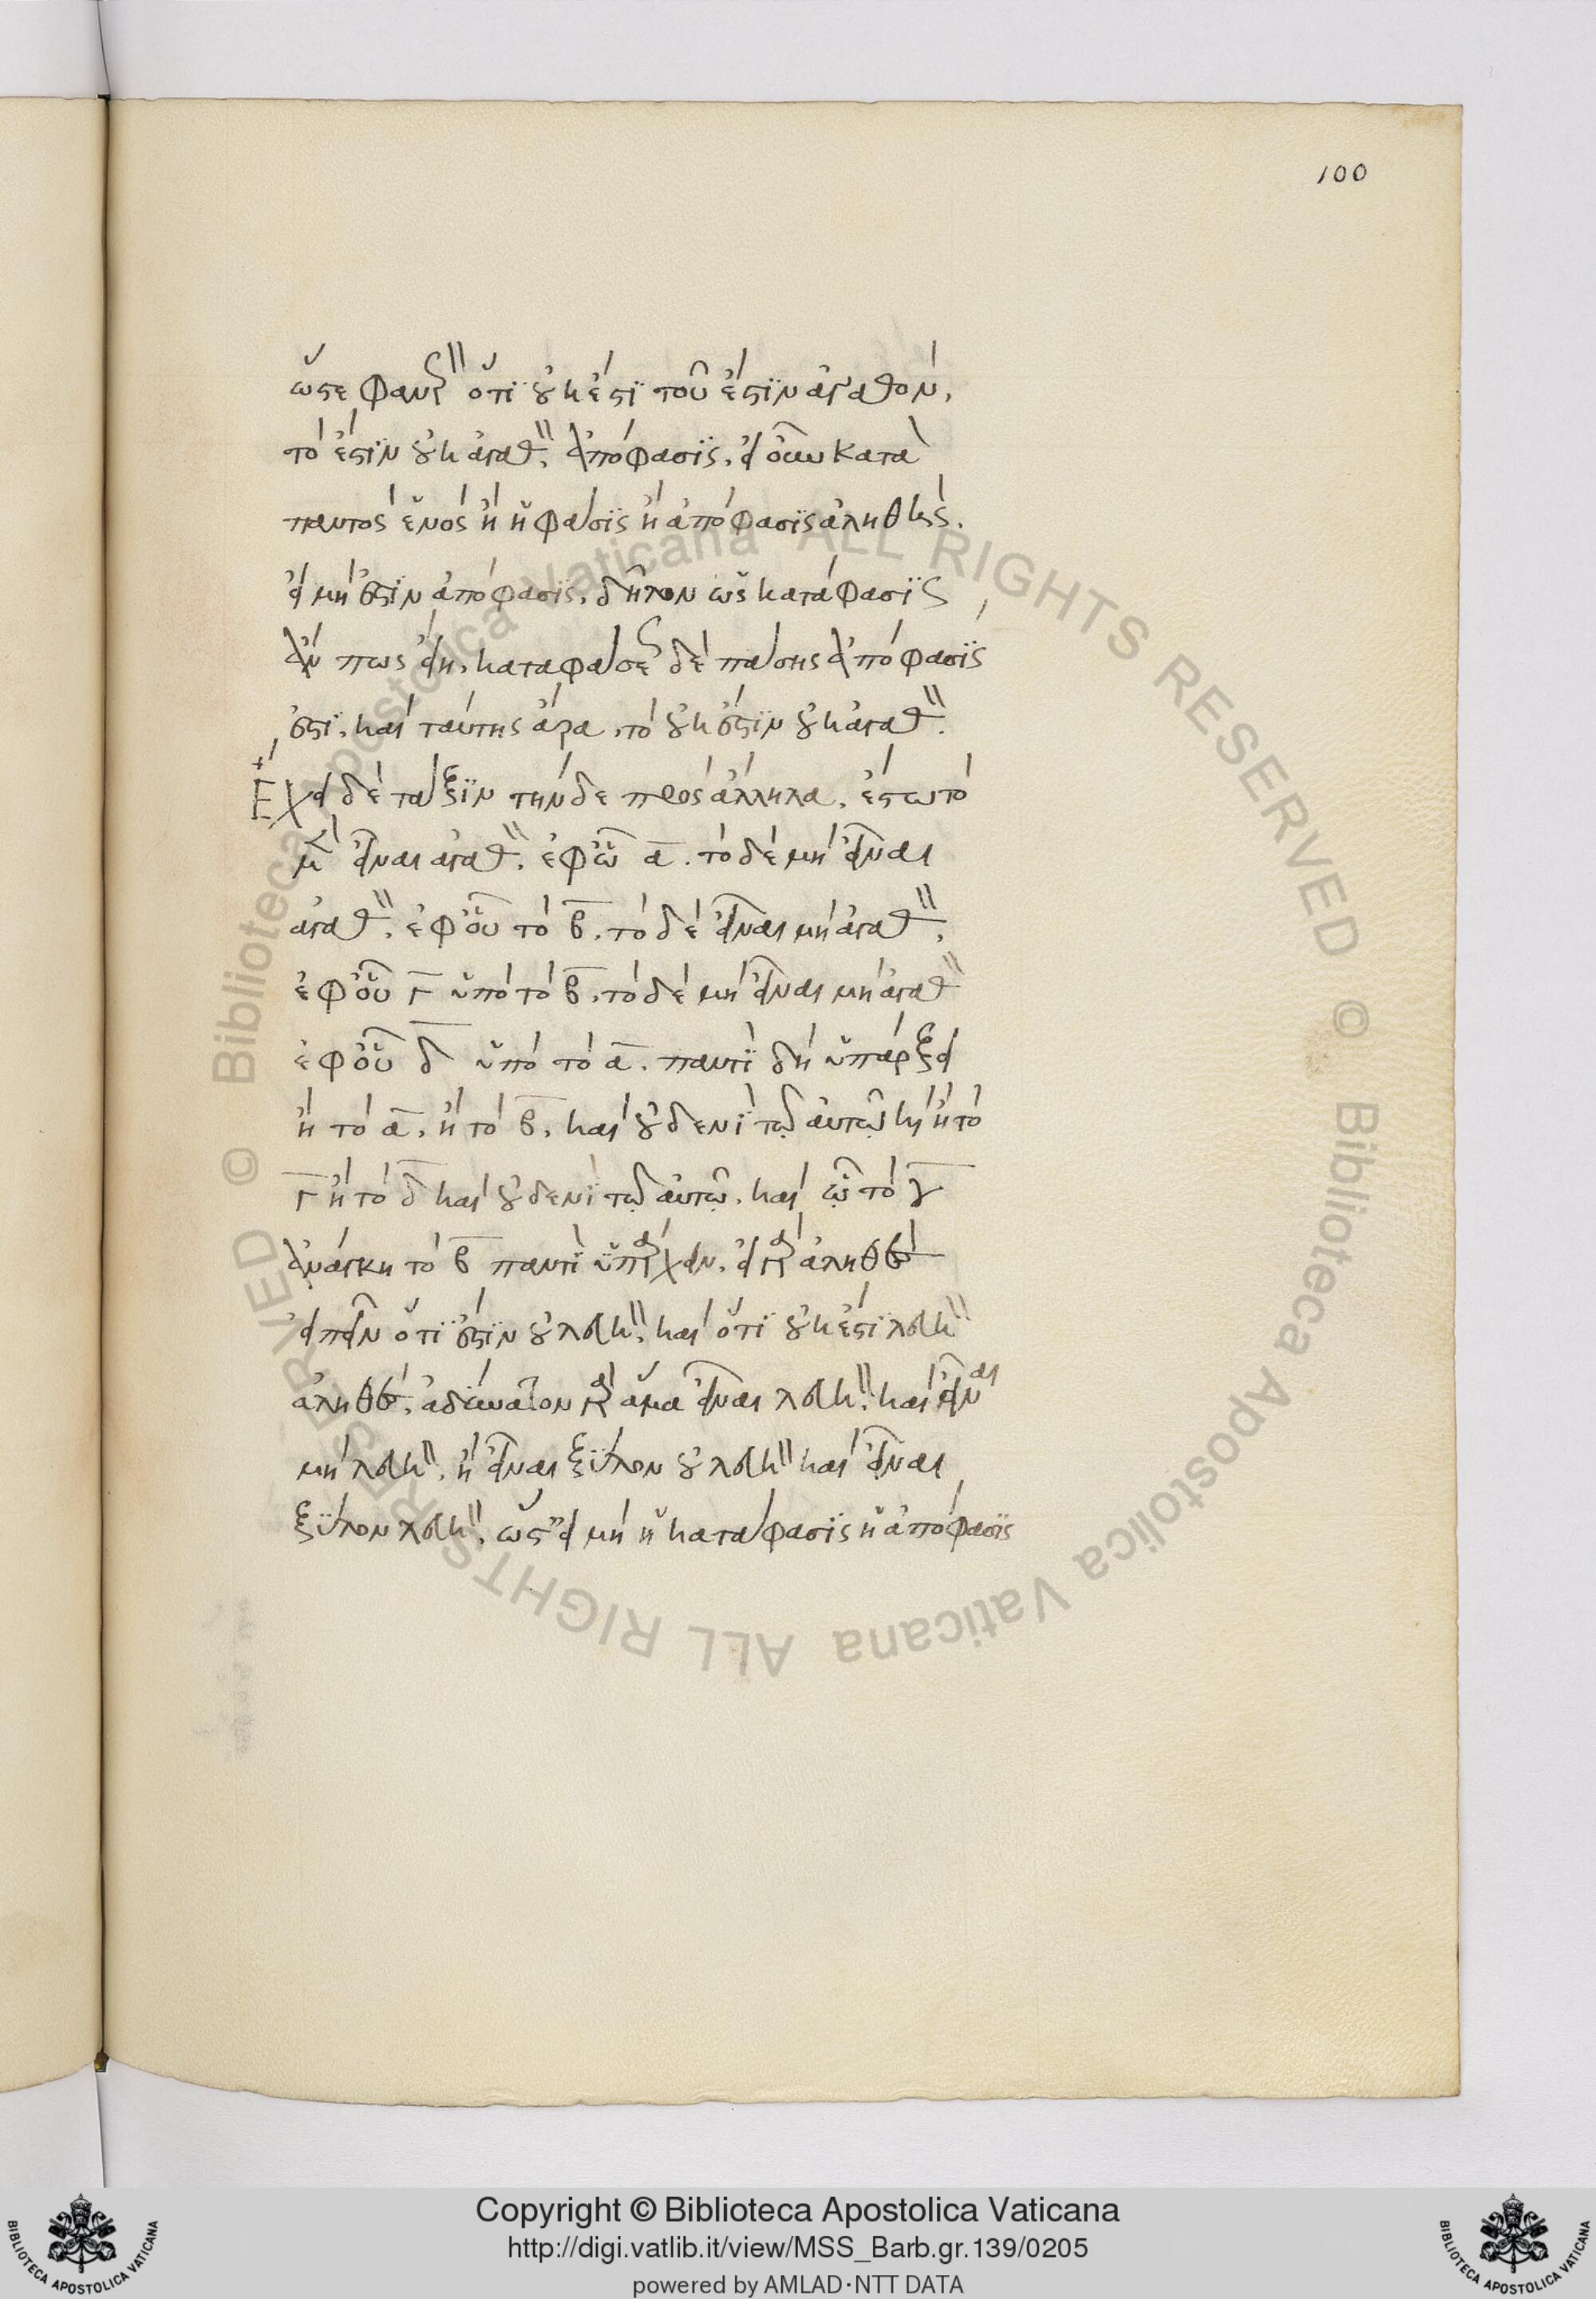 100
ὥστε φανερὸν ὅτι οὐκ ἔστι τοῦ ἔστιν ἀγαθόν,
τὸ ἔστιν οὐκ ἀγαθὸν, ἀπόφασις. εἰ οὖν κατὰ
παντὸς ἑνὸς ἢ ἡ φάσις ἢ ἀπόφασις ἀληθὴς.
εἰ μὴ ἔστιν ἀπόφασις, δῆλον ὡς κατάφασις
ἄν πως εἴη, καταφάσεως δὲ πάσης ἀπόφασίς
ἐστι, καὶ ταύτης ἄρα, τὸ οὐκ ἔστιν οὐκ ἀγαθὸν.
Ἔχει δὲ τάξιν τήνδε πρὸς ἄλληλα, ἔστω τὸ
μὲν εἶναι ἀγαθὸν, ἐφ' ὧ α. τὸ δὲ μὴ εἶναι
ἀγαθὸν, ἐφ' οὗ τὸ β, τὸ δὲ εἶναι μὴ ἀγαθὸν,
ἐφ' οὗ γ ὑπὸ τὸ β, τὸ δὲ μὴ εἶναι μὴ ἀγαθὸν
ἐφ' οὗ δ ὑπὸ τὸ α. παντὶ δὴ ὑπάρξει
ἢ τὸ α, ἢ τὸ β, καὶ οὐδενὶ τῷ αὐτῷ καὶ ἢ τὸ
γ ἢ τὸ δ καὶ οὐδενὶ τῷ αὐτῷ, καὶ ᾧ τὸ γ
ἀνάγκη τὸ β παντὶ ὑπάρχειν, εἰ γὰρ ἀληθὲς
εἰπεῖν ὅτι ἔστιν οὐ λευκὸν, καὶ ὅτι οὐκ ἔστι λευκὸν
ἀληθὲς, ἀδύνατον γὰρ ἅμα εἶναι λευκὸν, καὶ εἶναι
μὴ λευκὸν, ἢ εἶναι ξύλον οὐ λευκὸν καὶ εἶναι
ξύλον λευκὸν, ὥστ' εἰ μὴ ἡ κατάφασις ἡ ἀπόφασις
Copyright © Biblioteca Apostolica Vaticana
http://digi.vatlib.it/view/MSS_Barb.gr.139/0205
powered by AMLAD·NTT DATA
BIBLIOTECA APOSTOLICA VATICANA
BIBLIOTECA APOSTOLICA VATICANA
© Biblioteca Apostolica Vaticana ALL RIGHTS RESERVED © Biblioteca Apostolica Vaticana ALL RIGHTS RESERVED